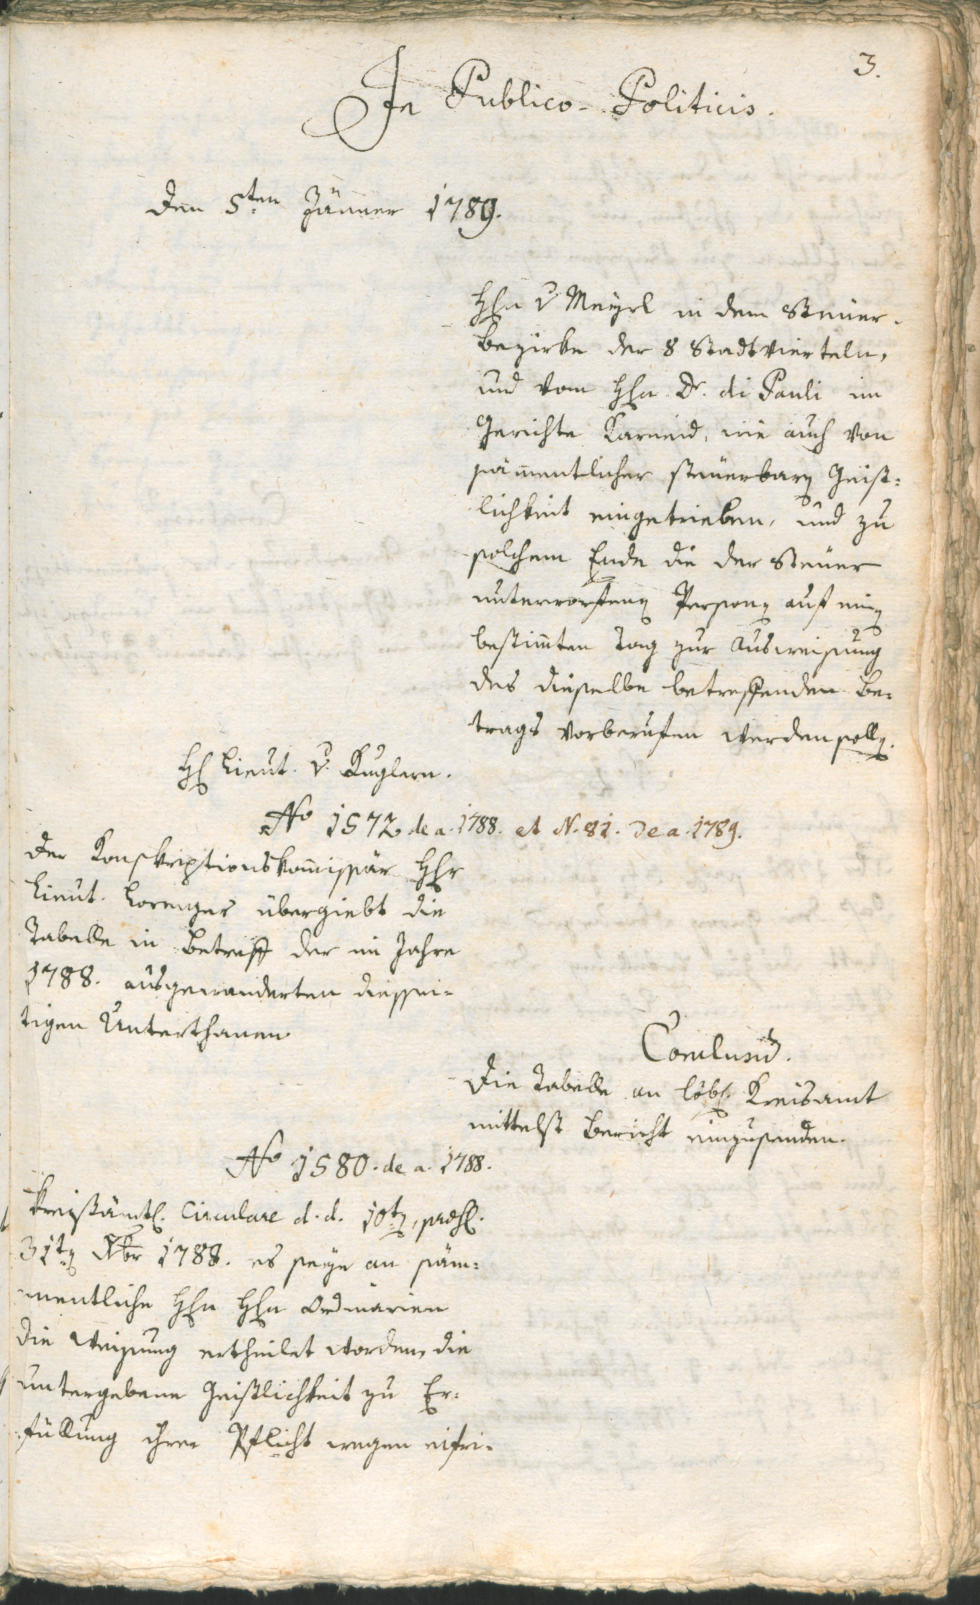 3.
In Publico-Politicis.
Den 5ten Jänner 1789.
Hhn v. Mayrl in dem Steuer-
bezirke der 8 Stadtvierteln,
und vom Hhn Dr. di Pauli im
Gerichte Karneid, wie auch von
sämmentlicher steuerbaren Geist-
lichkeit eingetrieben, und zu
solchem Ende die der Steuer
unterworfenen Personen auf einen
bestimmten Tag zur Ausweisung
des dieselbe betreffenden Be-
trags vorberufen werden sollen.
Hh Lieut. v. Kuglern.
No 1572 de a. 1788. et N. 81. de a. 1789.
Der Konskriptionskommissär Hhr
Lieut. Lorenger übergiebt die
Tabelle in Betreff der im Jahre
1788. ausgewanderten diessei-
tigen Unterthanen.
Conclusum.
Die Tabelle an löbl. Kreisamt
mittelst Bericht einzusenden.
No 1580. de a. 1788.
Kreißämtl. Circulare d. d. 10ten, praes.
31ten Xbr 1788. es seye an säm-
mentliche Hhn Hhn Ordinarien
die Weisung ertheilet worden, die
untergebene Geistlichkeit zu Er-
füllung ihrer Pflicht wegen eifri-